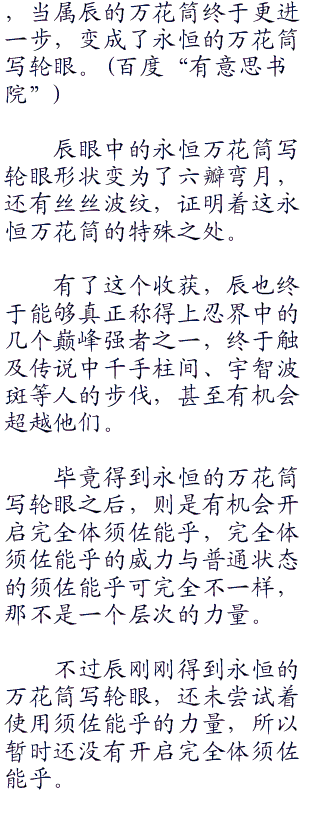 ，当属辰的万花筒终于更进
一步，变成了永恒的万花筒
写轮眼。(百度“有意思书
院”)
辰眼中的永恒万花筒写
轮眼形状变为了六瓣弯月，
还有丝丝波纹，证明着这永
恒万花筒的特殊之处。
有了这个收获，辰也终
于能够真正称得上忍界中的
几个巅峰强者之一，终于触
及传说中千手柱间、宇智波
斑等人的步伐，甚至有机会
超越他们。
毕竟得到永恒的万花筒
写轮眼之后，则是有机会开
启完全体须佐能乎，完全体
须佐能乎的威力与普通状态
的须佐能乎可完全不一样，
那不是一个层次的力量。
不过辰刚刚得到永恒的
万花筒写轮眼，还未尝试着
使用须佐能乎的力量，所以
暂时还没有开启完全体须佐
能乎。